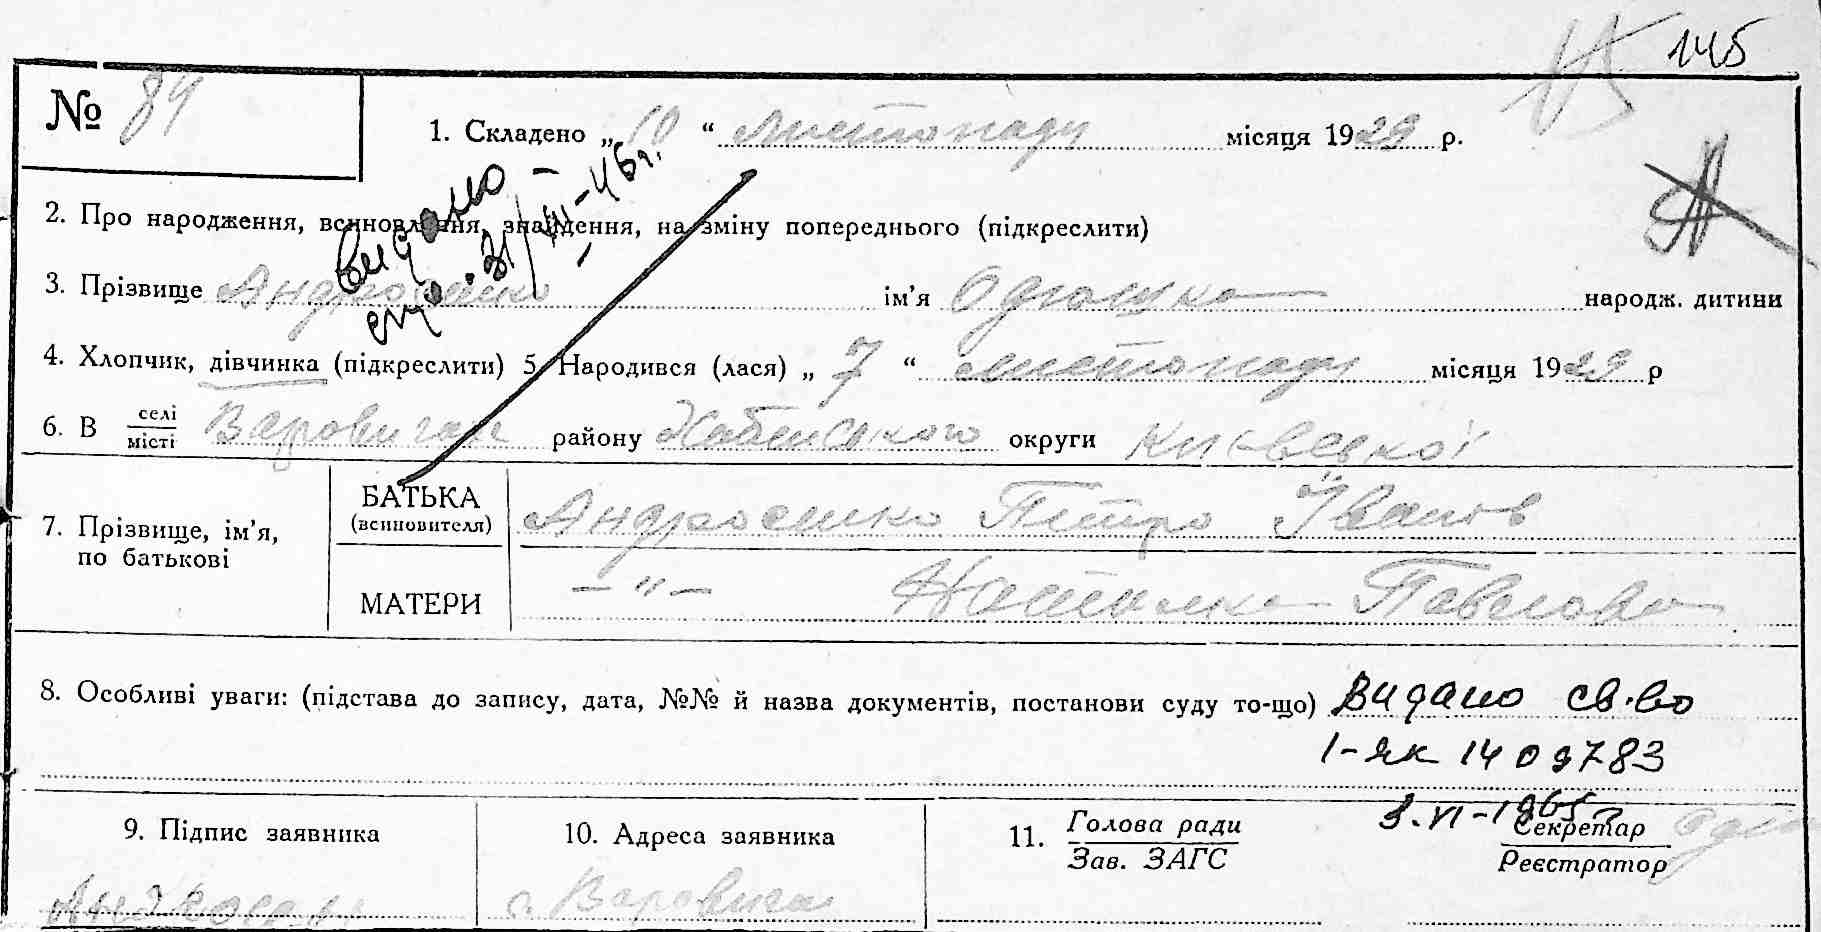 145
№ 84
1. Складено „ 10 “ листопаду місяця 1929 р.
2. Про народження, всиновлення, знайдення, на зміну попереднього (підкреслити)
видано
31/
-46 г.
3. Прізвище Андросенко ім’я народж. дитини
4. Хлопчик, дівчинка (підкреслити) 5. Народився (лася) „ 7 “ листопаду місяця 1929 р
6. В селі
місті Варовичах району Хабенського округи Київської
7. Прізвище, ім’я,
по батькові
БАТЬКА
(всиновителя) Андросенко Петро Іванов
МАТЕРИ – " – Павлова
8. Особливі уваги: (підстава до запису, дата, №№ й назва документів, постанови суду то-що) Видано св-во
1-як 1409783
3.VI-1965
9. Підпис заявника
10. Адреса заявника
с. Варовичи
11. Голова ради
Зав. ЗАГС
Секретар
Реєстратор